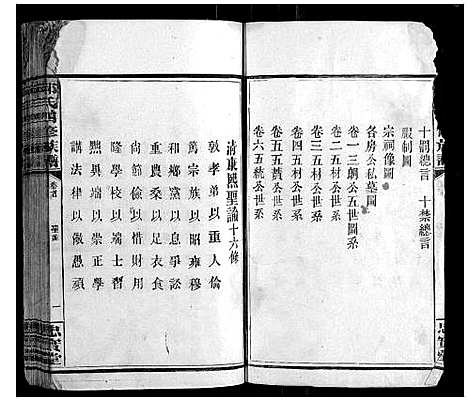 十罰總言　十禁總言
服制圖
宗祠像圖
各房公私墓圖
卷一三朝公五世圖系
卷二五材公世系
卷三五材公世系
卷四五材公世系
卷五五公世系
卷六五公世系
清康熙聖諭十六條
敦孝弟以重人倫
篤宗族以昭雍穆
和鄉黨以息爭訟
重農桑以足衣食
尚節儉以惜財用
隆學校以端士習
黜異端以崇正學
講法律以儆愚頑
氏首修族譜
卷首
一
忠實堂